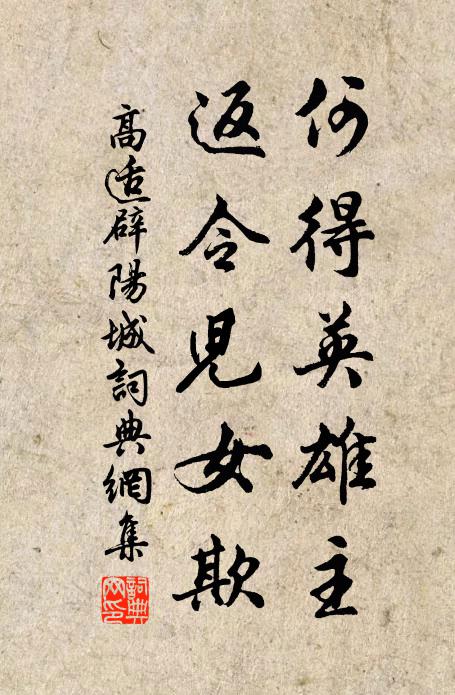 何得英雄主
返令兒女欺
高适辟陽城詞典網集
詞典
网印